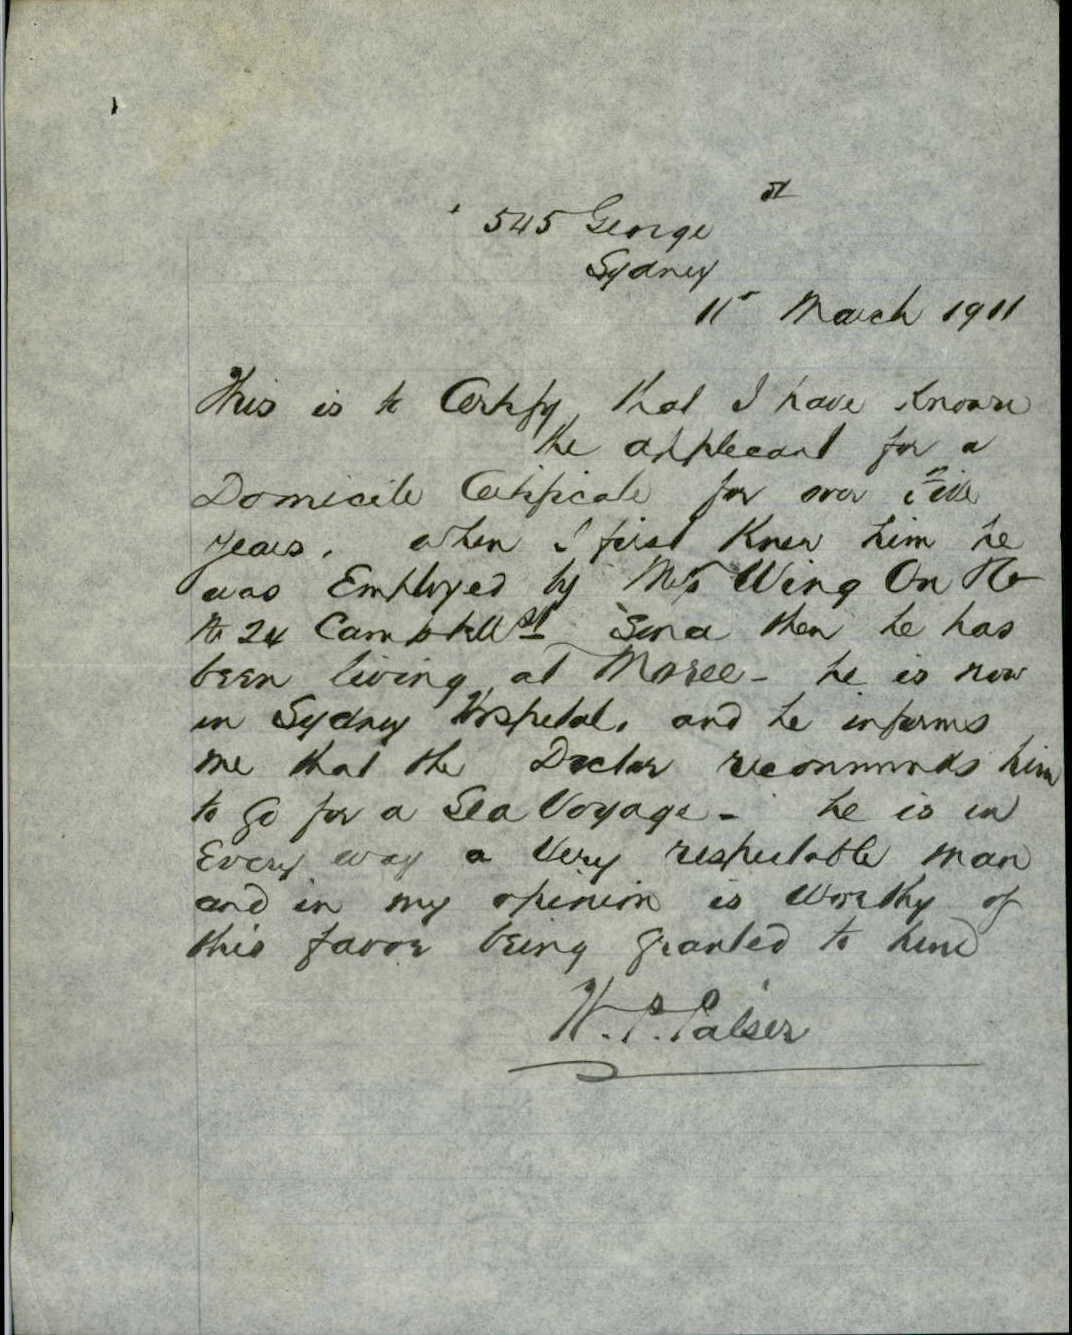 545 George St
Sydney
11th March 1911
This is to Certify that I have Known
the applicant for a
Domicile Certificate for over Five
years. When I first Knew him he
was Employed by Mrs Wing On
24 Campbell St Since then he has
been living at Moree - he is now
in Sydney Hospital, and he informs
me that the Doctor recommends him
to go for a Sea Voyage - he is in
Every way a Very respectable man
and in my opinion is Worthy of
this favor being granted to him
W. P. Palser